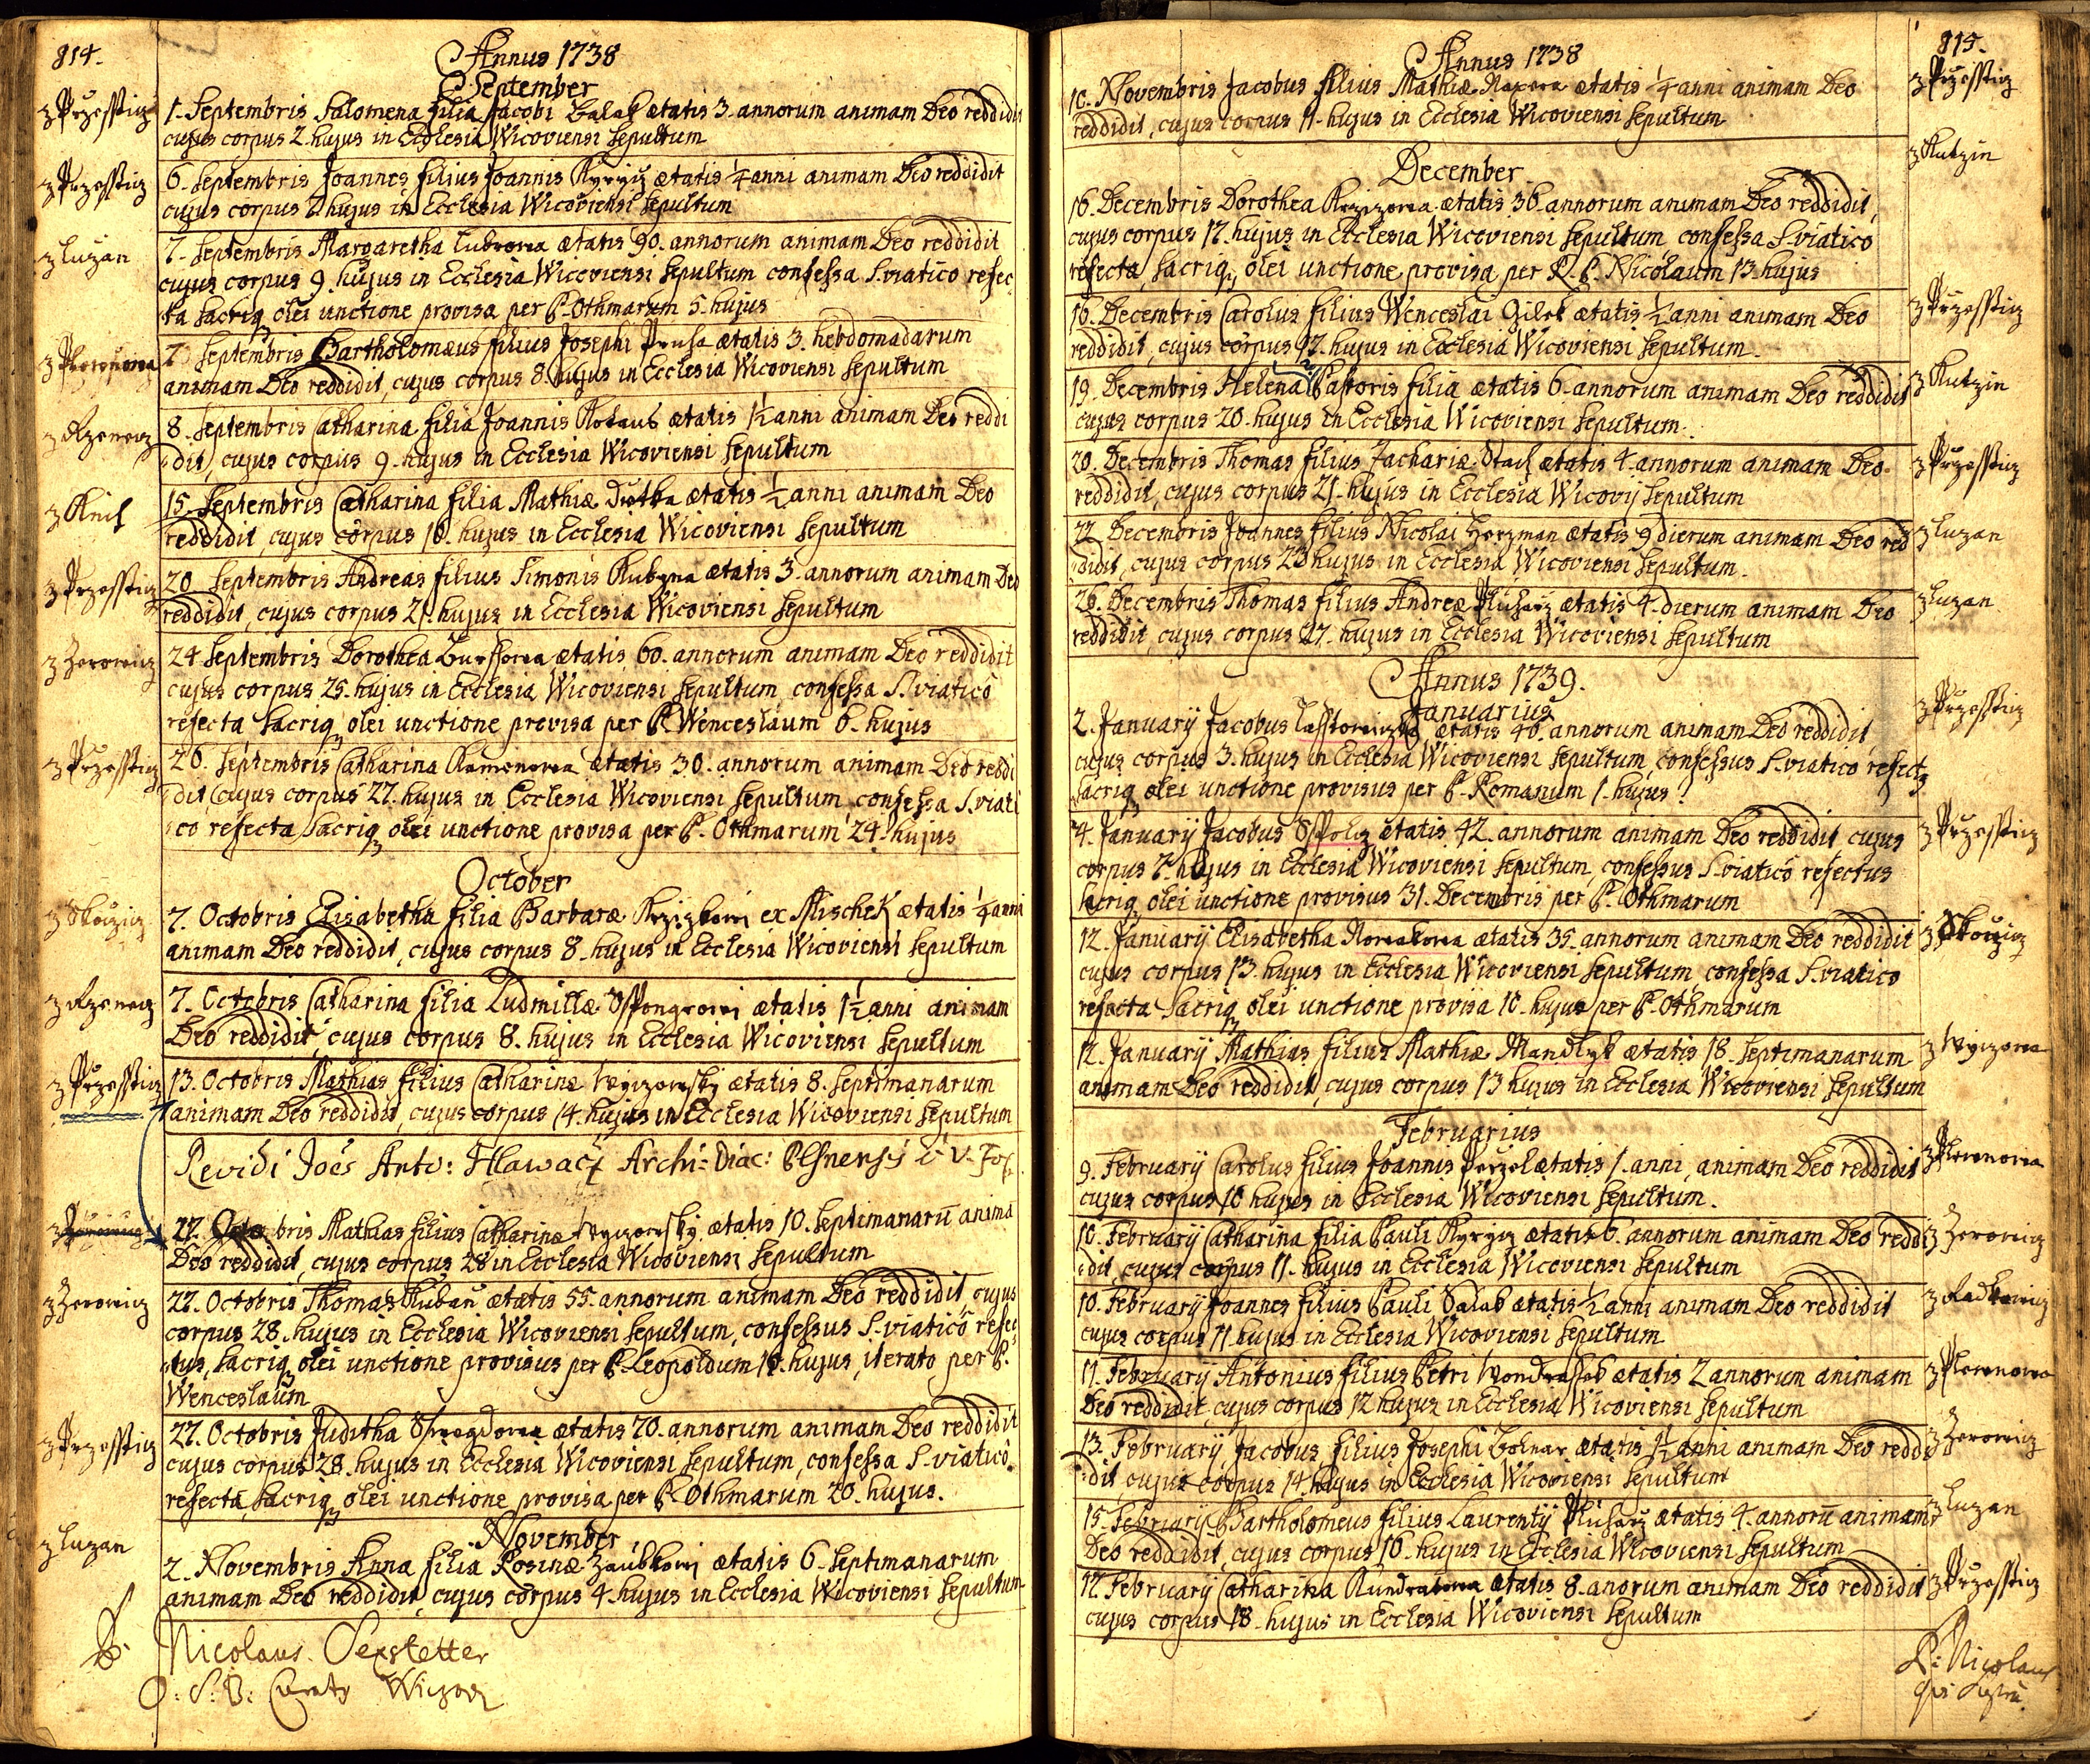 814.
Annus 1738
September
z Przesstiz
1. Septembris Salomena filia Jacobi Balak ætatis 3. annorum animam Deo reddidit
cujus corpus 2. hujus in Ecclesia Wicoviensi sepultum
z Przesstiz
6. Septembris Joannes filius Joannis Kyryiz ætatis 1/4 anni animam Deo reddidit
cujus corpus hujus in Ecclesia Wicoviensi sepultum
z Luzan
7. Septembris Margaretha ætatis 90. annorum animam Deo reddidit
cujus corpus 9. hujus in Ecclesia Wicoviensi sepultum confessa S. viatico refec
ta sacriq olei unctione provisa per P. Othmarum 5. hujus
7 Septembris Bartholomæus filius Josephi Prusa ætatis 3. hebdomadarum
animam Deo reddidit, cujus corpus 8. hujus in Ecclesia Wicoviensi sepultum
8. Septembris Catharina filia Joannis ætatis 1 1/2 anni animam Deo reddi
dit, cujus corpus 9. hujus in Ecclesia Wicoviensi sepultum
15. Septembris Catharina filia Mathiæ Dutka ætatis 1/2 anni animam Deo
reddidit, cujus corpus hujus in Ecclesia Wicoviensi sepultum
z Przesstiz
20. Septembris Andreas filius Simonis ætatis 3. annorum animam Deo
reddidit, cujus corpus 21. hujus in Ecclesia Wicoviensi sepultum
z Zerowiz
24 Septembris Dorothea ætatis 60. annorum animam Deo reddidit
cujus corpus 25. hujus in Ecclesia Wicoviensi sepultum, confessa S. viatico
refecta sacriq olei unctione provisa per P. Wenceslaum 6. hujus
z Przesstiz
26. Septembris Catharina Kamenowa ætatis 30. annorum animam Deo reddi
dit cujus corpus 27. hujus in Ecclesia Wicoviensi sepultum confessa S. viati
co refecta sacriq olei unctione provisa per P. Othmarum 24. hujus
October
z Skoziz
7. Octobris Elisabetha filia Barbaræ ex Mischek ætatis 1/4 anni
animam Deo reddidit, cujus corpus 8. hujus in Ecclesia Wicoviensi sepultum
7. Octobris Catharina filia Ludmillæ ætatis 1 1/2 anni animam
Deo reddidit, cujus corpus 8. hujus in Ecclesia Wicoviensi sepultum
z Przesstiz
13. Octobris Mathias filius Catharinæ Wyizowsky ætatis 8. septimanarum
animam Deo reddidit, cujus corpus 14. hujus in Ecclesia Wicoviensi sepultum
Revidi Joës Anto: Hlawacz Archi-Diac: Plsnensis
27. Octobris Mathias filius Catharinæ Wyizowsky ætatis 10. septimanarū animā
Deo reddidit, cujus corpus 28 in Ecclesia Wicoviensi sepultum
z Zerowiz
27. Octobris Thomas Kuban ætatis 55. annorum animam Deo reddidit cujus
corpus 28. hujus in Ecclesia Wicoviensi sepultum, confessus S. viatico refec
tus, sacriq olei unctione provisus per P. Leopoldum hujus, iterato per P.
Wenceslaum
z Przesstiz
27. Octobris Juditha ætatis 70. annorum animam Deo reddidit
cujus corpus 28. hujus in Ecclesia Wicoviensi sepultum, confessa S. viatico
refecta, sacriq olei unctione provisa per P. Othmarum 20. hujus.
November
z Luzan
2. Novembris Anna filia Rosinæ ætatis 6. septimanarum
animam Deo reddidit cujus corpus 4. hujus in Ecclesia Wicoviensi sepultum
P. Nicolaus Sexstetter
O: S: B:
815.
Annus 1738
z Przesstiz
10. Novembris Jacobus filius Mathiæ ætatis 1/4 anni animam Deo
reddidit, cujus corpus 11. hujus in Ecclesia Wicoviensi sepultum
December
z Kutzin
16. Decembris Dorothea ætatis 36. annorum animam Deo reddidit,
cujus corpus 17. hujus in Ecclesia Wicoviensi sepultum confessa S. viatico
refecta, sacriq olei unctione provisa per R. P. Nicolaum 13. hujus
z Przesstiz
16. Decembris Carolus filius Wenceslai Gilek ætatis 1/2 anni animam Deo
reddidit, cujus corpus 17. hujus in Ecclesia Wicoviensi sepultum.
z Kutzin
19. Decembris Helena Pastoris filia ætatis 6. annorum animam Deo reddidit
cujus corpus 20. hujus in Ecclesia Wicoviensi sepultum.
z Przesstiz
20. Decembris Thomas filius Zachariæ Stach ætatis 4. annorum animam Deo
reddidit, cujus corpus 21. hujus in Ecclesia Wicovij sepultum
z Luzan
22. Decembris Joannes filius Nicolai Herzman ætatis 9 dierum animam Deo red
didit, cujus corpus 23 hujus in Ecclesia Wicoviensi sepultum.
z Luzan
26. Decembris Thomas filius Andreæ ætatis 4. dierum animam Deo
reddidit, cujus corpus 27. hujus in Ecclesia Wicoviensi sepultum
Annus 1739.
Januarius
z Przesstiz
2. Januarij Jacobus ætatis 40. annorum animam Deo reddidit
cujus corpus 3. hujus in Ecclesia Wicoviensi sepultum, confessus S. viatico refect
sacriq olei unctione provisus per P. Romanum 1. hujus
z Przesstiz
4. Januarij Jacobus ætatis 42. annorum animam Deo reddidit cujus
corpus 7. hujus in Ecclesia Wicoviensi sepultum, confessus S. viatico refectus
sacriq olei unctione provisus 31. Decembris per P. Othmarum
z Skoziz
12. Januarij Elisabetha Nowakowa ætatis 35. annorum animam Deo reddidit
cujus corpus 13. hujus in Ecclesia Wicoviensi sepultum, confessa S. viatico
refecta sacriq olei unctione provisa 10. hujus per P. Othmarum
z Wyizowa
12. Januarij Mathias filius Mathiæ Mandlyk ætatis 18. septimanarum
animam Deo reddidit, cujus corpus 13 hujus in Ecclesia Wicoviensi sepultum
Februarius
9. Februarij Carolus filius Joannis ætatis 1. anni, animam Deo reddidit
cujus corpus 10 hujus in Ecclesia Wicoviensi sepultum.
z Zerowiz
10. Februarij Catharina filia Pauli Kyryiz ætatis 6. annorum animam Deo reddi
dit, cujus corpus 11. hujus in Ecclesia Wicoviensi sepultum
z Radkowiz
10. Februarij Joannes filius Pauli ætatis 1/2 anni animam Deo reddidit
cujus corpus 11 hujus in Ecclesia Wicoviensi sepultum
11. Februarij Antonius filius Petri Wondrassek ætatis 2 annorum animam
Deo reddidit, cujus corpus 12 hujus in Ecclesia Wicoviensi sepultum
z Zerowiz
13. Februarij Jacobus filius Josephi ætatis 1 1/2 anni animam Deo reddi
dit cujus corpus 14. hujus in Ecclesia Wicoviensi sepultum
z Luzan
15. Februarij Bartholomeus filius Laurentij ætatis 4. annorū animam
Deo reddidit, cujus corpus 16. hujus in Ecclesia Wicoviensi sepultum
z Przesstiz
17. Februarij Catharina ætatis 8. anorum animam Deo reddidit
cujus corpus 18. hujus in Ecclesia Wicoviensi sepultum
P: Nicolaus